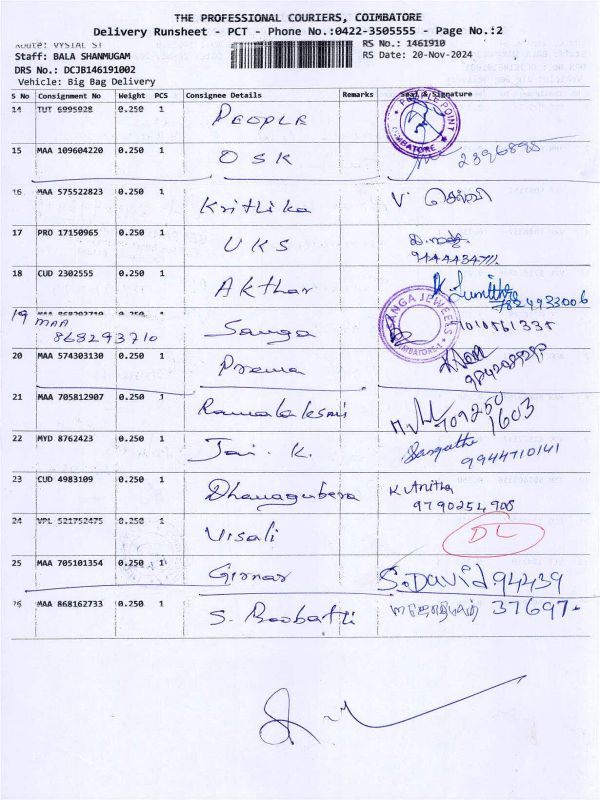 THE PROFESSIONAL COURIERS, COIMBATORE
Delivery Runsheet - PCT - Phone No.:0422-3505555 - Page No.:2
Route: VYSIAL ST
RS No.: 1461910
Staff: BALA SHANMUGAM
RS Date: 20-Nov-2024
DRS No.: DCJB146191002
Vehicle: Big Bag Delivery
S No Consignment No Weight PCS Consignee Details Remarks Seal & Signature
14 TUT 6995928 0.250 1 PEOPLE
15 MAA 109604220 0.250 1 OSK
16 MAA 575522823 0.250 1 Krithika V. செல்வி
17 PRO 17150965 0.250 1 UKS
18 CUD 2302555 0.250 1 Akthar 7824933006
19 MAA 868293710 0.250 1 Sanga
SANGA JEWELS
COIMBATORE-1
20 MAA 574303130 0.250 1 Prema
21 MAA 705812907 0.250 1 709250 1603
22 MYD 8762423 0.250 1 Jai. K. Sangathi 9944710141
23 CUD 4983109 0.250 1 Dhanagubera K Anitha 9790254908
24 VPL 521752475 0.250 1 Visali DL
25 MAA 705101354 0.250 1 Girnar S. David 94439
26 MAA 868162733 0.250 1 S. 37697